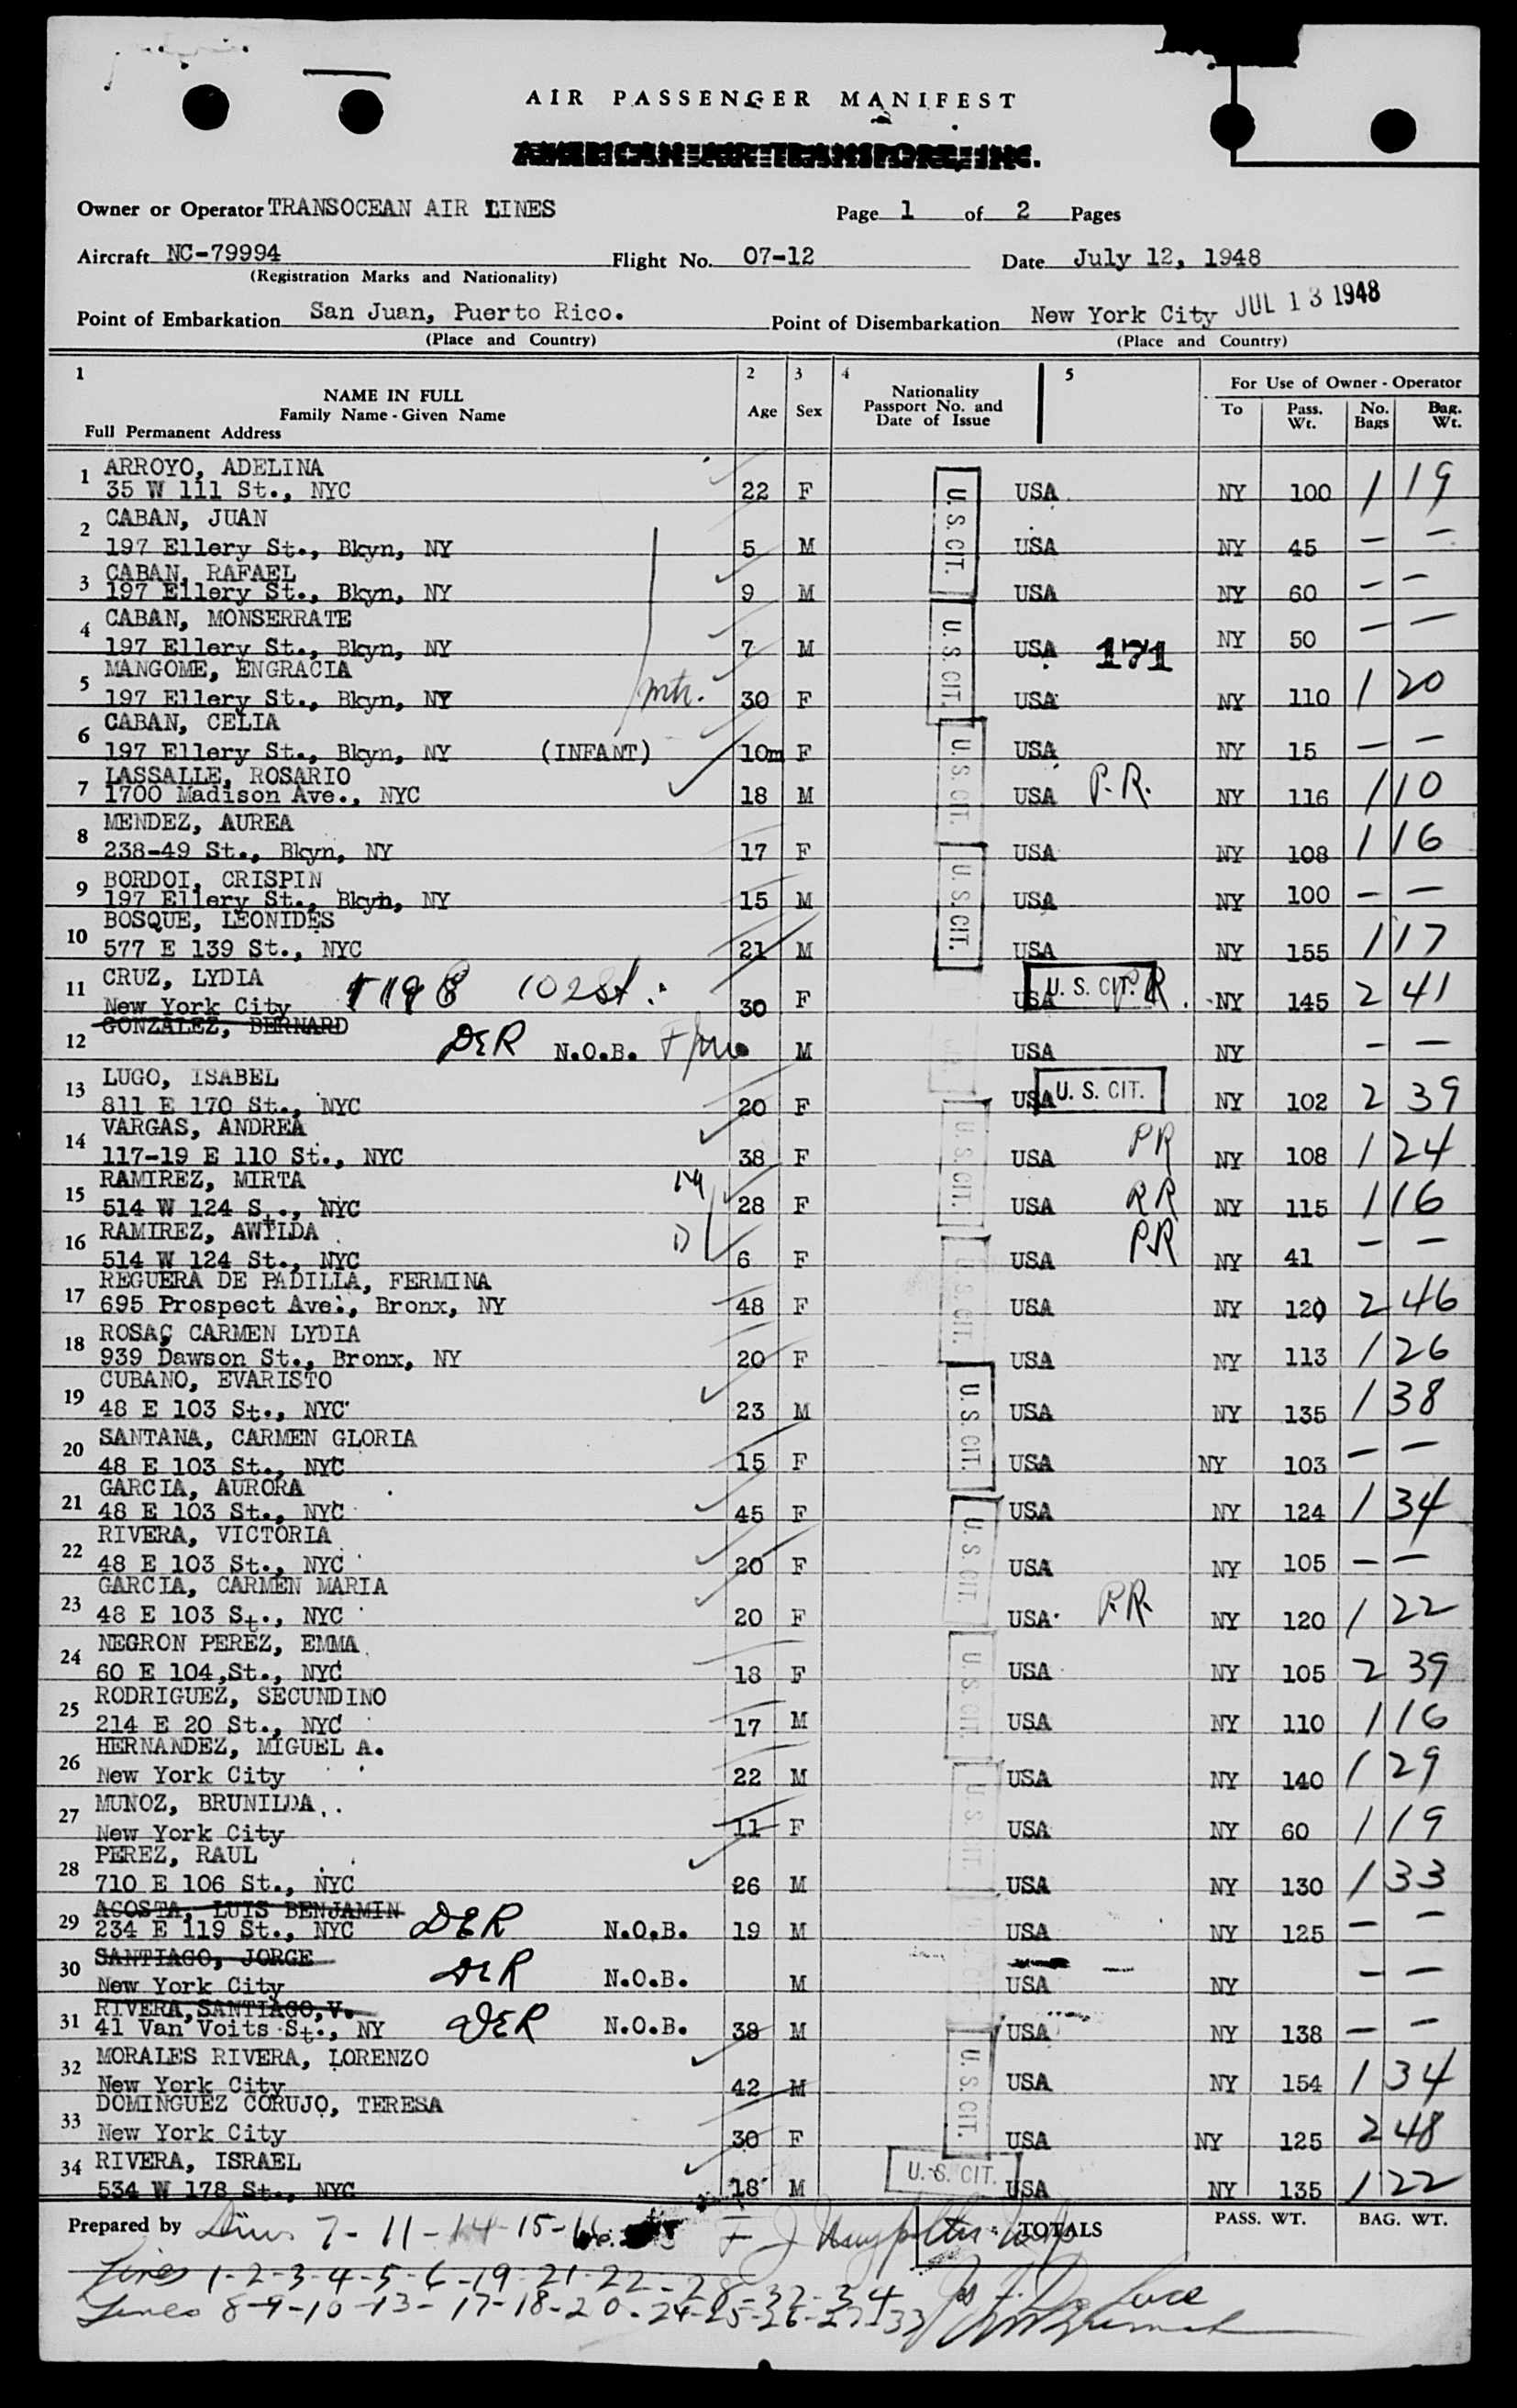 AIR PASSENGER MANIFEST
AMERICAN AIR TRANSPORT, INC.
Owner or Operator TRANSOCEAN AIR LINES Page 1 of 2 Pages
Aircraft NC-79994 Flight No. 07-12 Date July 12, 1948
(Registration Marks and Nationality)
Point of Embarkation San Juan, Puerto Rico. Point of Disembarkation New York City JUL 13 1948
(Place and Country) (Place and Country)
1 2 3 4 5 For Use of Owner - Operator
NAME IN FULL Age Sex Nationality To Pass. No. Bag.
Family Name - Given Name Passport No. and Wt. Bags Wt.
Full Permanent Address Date of Issue
1 ARROYO, ADELINA
35 W 111 St., NYC 22 F U.S. CIT. USA NY 100 1 19
2 CABAN, JUAN
197 Ellery St., Bkyn, NY 5 M USA NY 45 – –
3 CABAN, RAFAEL
197 Ellery St., Bkyn, NY 9 M USA NY 60 – –
4 CABAN, MONSERRATE
197 Ellery St., Bkyn, NY 7 M U.S. CIT. USA 171 NY 50 – –
5 MANGOME, ENGRACIA
197 Ellery St., Bkyn, NY mth. 30 F USA NY 110 1 20
6 CABAN, CELIA
197 Ellery St., Bkyn, NY (INFANT) 10m F U.S. CIT. USA NY 15 – –
7 LASSALLE, ROSARIO
1700 Madison Ave., NYC 18 M USA P.R. NY 116 1 10
8 MENDEZ, AUREA
238-49 St., Bkyn, NY 17 F U.S. CIT. USA NY 108 1 16
9 BORDOI, CRISPIN
197 Ellery St., Bkyn, NY 15 M USA NY 100 – –
10 BOSQUE, LEONIDES
577 E 139 St., NYC 21 M USA NY 155 1 17
11 CRUZ, LYDIA
New York City 102 St. 30 F USA U. S. CIT. PR. NY 145 2 41
12 GONZALEZ, BERNARD
DER N.O.B. M USA NY – –
13 LUGO, ISABEL
811 E 170 St., NYC 20 F USA U. S. CIT. NY 102 2 39
14 VARGAS, ANDREA
117-19 E 110 St., NYC 38 F U.S. CIT. USA PR NY 108 1 24
15 RAMIREZ, MIRTA
514 W 124 St., NYC M 28 F USA PR NY 115 1 16
16 RAMIREZ, AWILDA
514 W 124 St., NYC D 6 F U.S. CIT. USA PR NY 41 – –
17 REGUERA DE PADILLA, FERMINA
695 Prospect Ave., Bronx, NY 48 F USA NY 120 2 46
18 ROSAÇ CARMEN LYDIA
939 Dawson St., Bronx, NY 20 F USA NY 113 1 26
19 CUBANO, EVARISTO
48 E 103 St., NYC 23 M U.S. CIT. USA NY 135 1 38
20 SANTANA, CARMEN GLORIA
48 E 103 St., NYC 15 F USA NY 103 – –
21 GARCIA, AURORA
48 E 103 St., NYC 45 F USA NY 124 1 34
22 RIVERA, VICTORIA
48 E 103 St., NYC 20 F U.S. CIT. USA NY 105 – –
23 GARCIA, CARMEN MARIA
48 E 103 St., NYC 20 F USA P.R. NY 120 1 22
24 NEGRON PEREZ, EMMA
60 E 104,St., NYC 18 F U.S. CIT. USA NY 105 2 39
25 RODRIGUEZ, SECUNDINO
214 E 20 St., NYC 17 M USA NY 110 1 16
26 HERNANDEZ, MIGUEL A.
New York City 22 M U.S. CIT. USA NY 140 1 29
27 MUNOZ, BRUNILDA
New York City 11 F USA NY 60 1 19
28 PEREZ, RAUL
710 E 106 St., NYC 26 M USA NY 130 1 33
29 ACOSTA, LUIS BENJAMIN
234 E 119 St., NYC DER N.O.B. 19 M USA NY 125 – –
30 SANTIAGO, JORGE
New York City DER N.O.B. M USA NY – –
31 RIVERA,SANTIAGO,V.
41 Van Voits St., NY DER N.O.B. 38 M USA NY 138 – –
32 MORALES RIVERA, LORENZO
New York City 42 M U.S. CIT. USA NY 154 1 34
33 DOMINGUEZ CORUJO, TERESA
New York City 30 F USA NY 125 2 48
34 RIVERA, ISRAEL
534 W 178 St., NYC 18 M U. S. CIT. USA NY 135 1 22
Prepared by 7-11-14-15-16 TOTALS PASS. WT. BAG. WT.
Lines 1-2-3-4-5-6-19-21-22-28-32-34
Lines 8-9-10-13-17-18-20-24-25-26-27-33